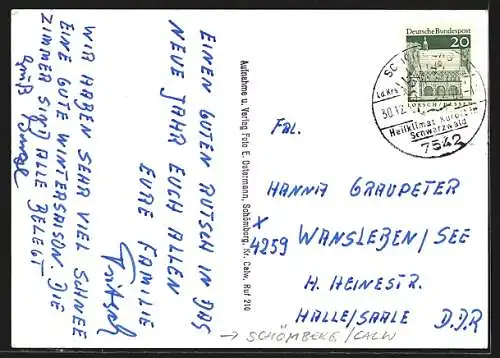 EINEN GUTEN RUTSCH IN DAS
NEUE JAHR EUCH ALLEN
EURE FAMILIE
WIR HABEN SEHR VIEL SCHNEE
EINE GUTE WINTERSAISON. DIE
ZIMMER SIND ALLE BELEGT
Gruß
Aufnahme u. Verlag Foto E. Ostermann, Schömberg, Kr. Calw, Ruf 210
Deutsche Bundespost
20
LORSCH/HESSEN
30.12.
Heilklimat. Kurort
Schwarzwald
7542
FAL.
HANNA GRAUPETER
X
4259 WANSLEBEN/SEE
H. HEINESTR.
HALLE/SAALE D.D.R
→ SCHÖMBERG/CALW